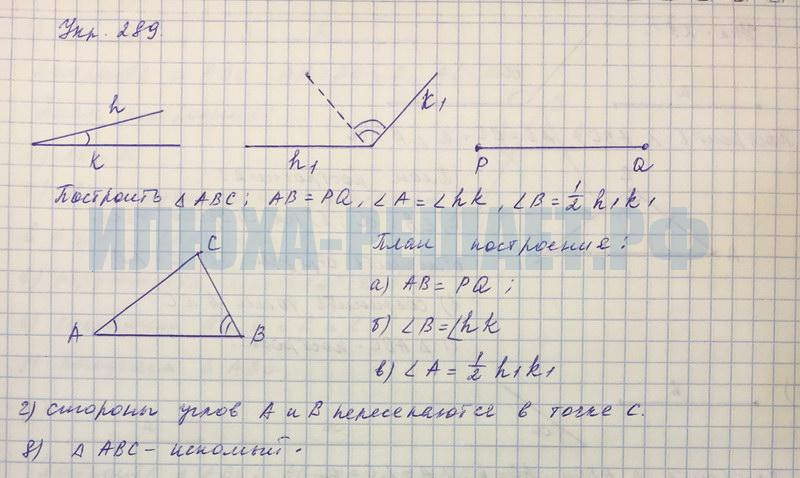 Упр. 289.
h
K
h1
K1
P
Q
Построить △ ABC; AB = PQ, ∠A = ∠hk, ∠B = 1/2 h1k1
ИЛЮХА-РЕШАЕТ.РФ
C
A
B
План построения:
а) AB = PQ;
б) ∠B = ∠hk
в) ∠A = 1/2 h1k1
г) стороны углов A и B пересекаются в точке C.
д) △ ABC – искомый.